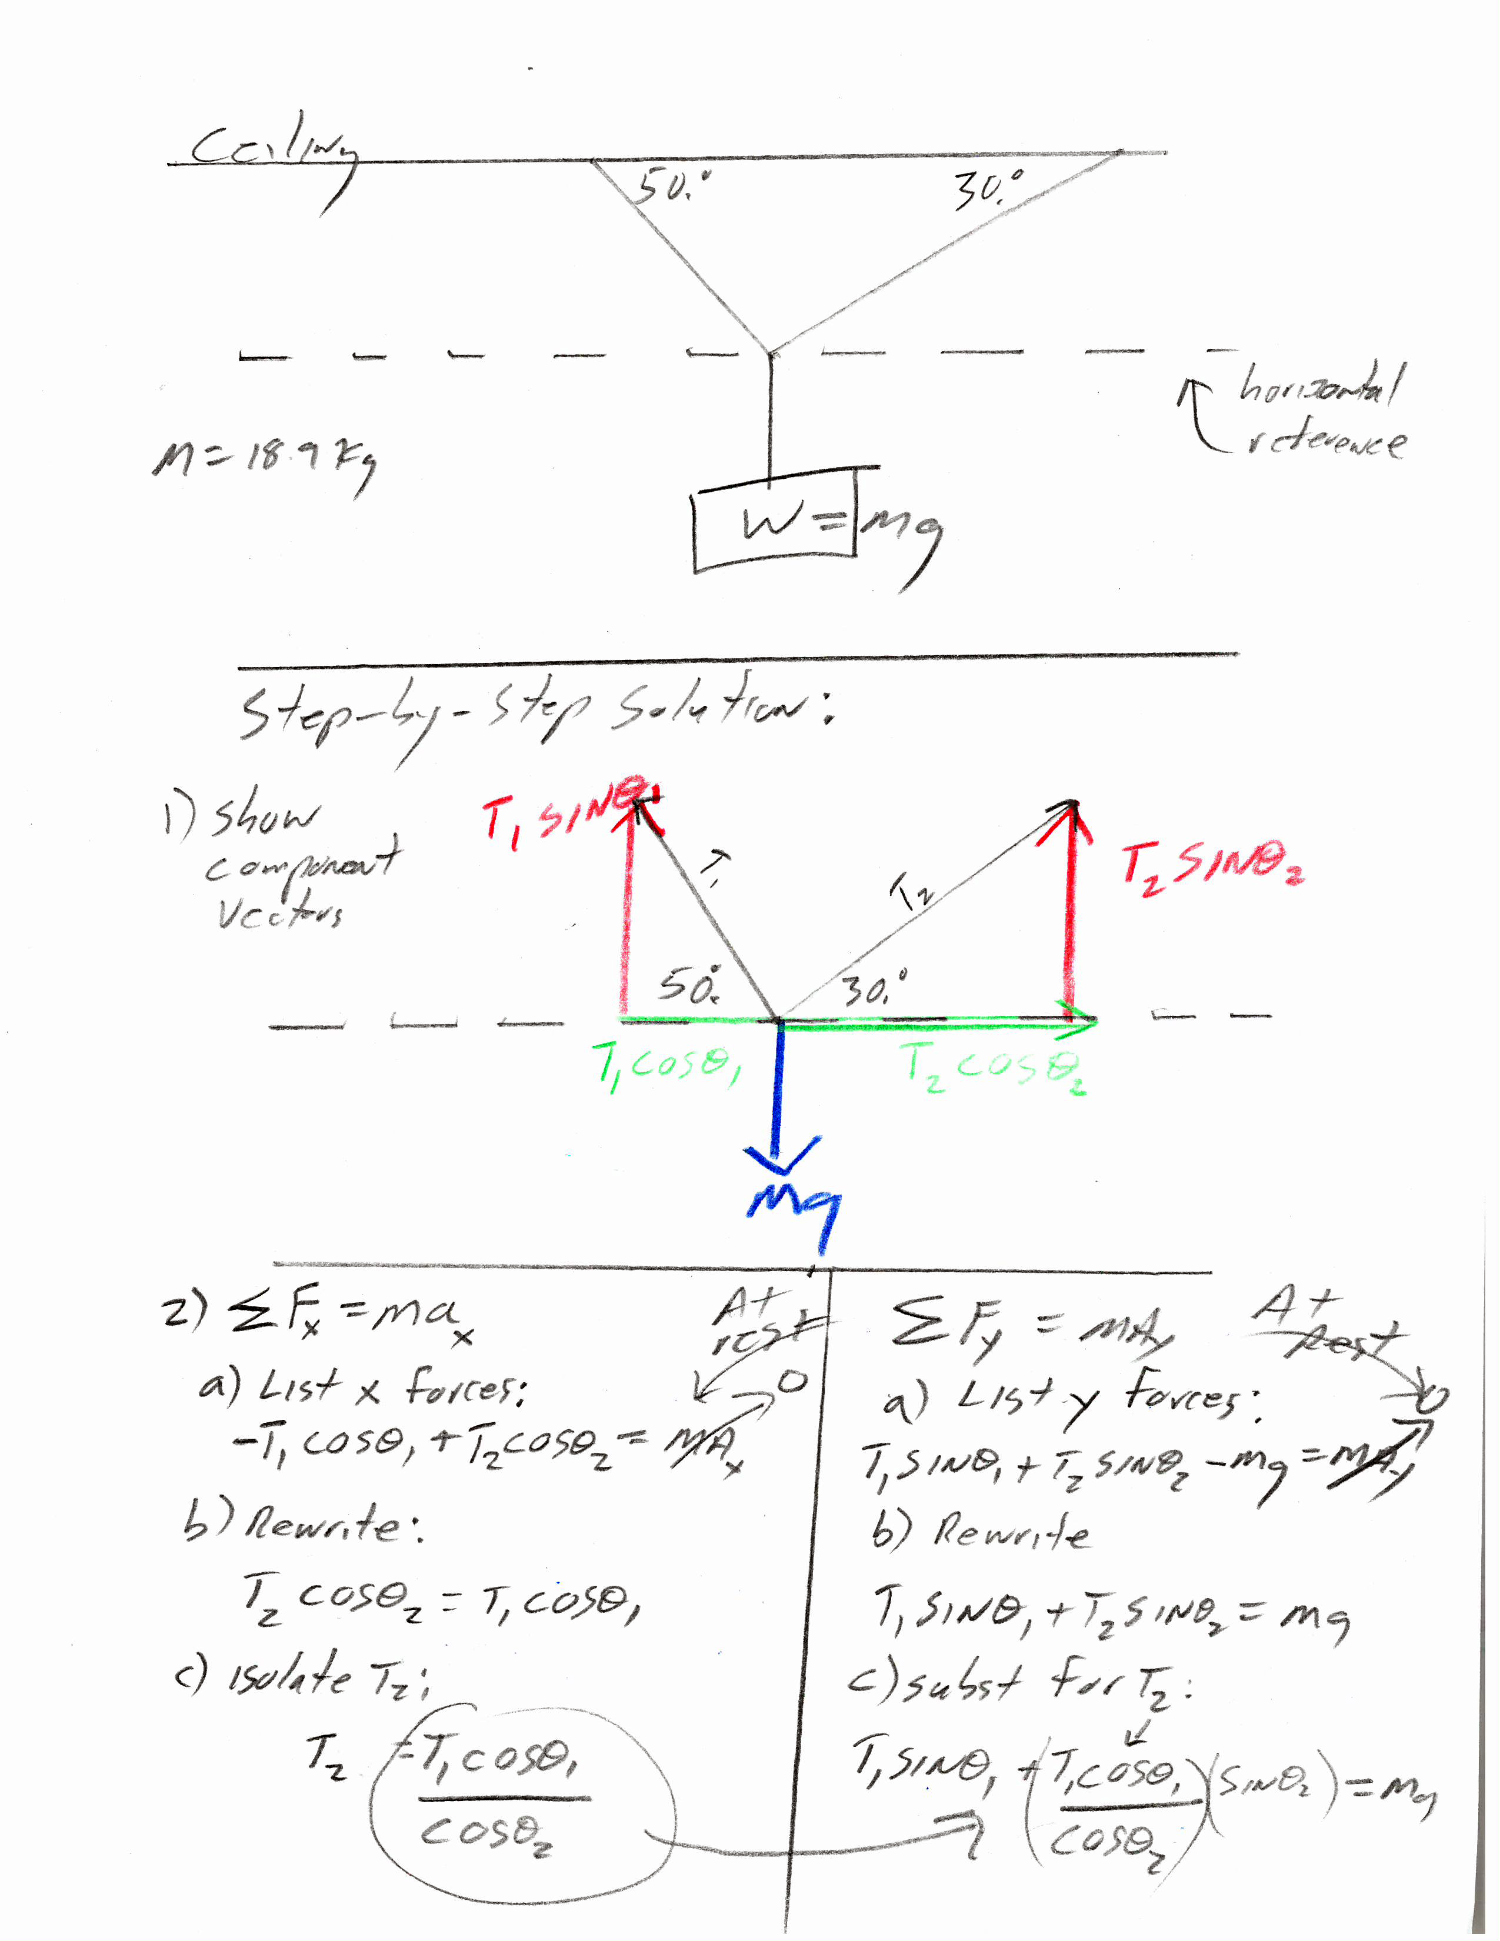 Ceiling
50.°
30.°
horizontal
reference
M = 18.9 Kg
W = mg
Step-by-Step Solution:
1) Show
component
Vectors
T₁ SINθ₁
T₁
T₂
T₂ SINθ₂
50.°
30.°
T₁ cosθ₁
T₂ cosθ₂
Mg
2) ΣFₓ = maₓ
At
rest
a) List x forces:
0
-T₁ cosθ₁ + T₂ cosθ₂ = MAₓ
b) Rewrite:
T₂ cosθ₂ = T₁ cosθ₁
c) Isolate T₂:
T₂ = T₁ cosθ₁
cosθ₂
ΣFy = mAy
At
Rest
a) List y forces:
0
T₁ SINθ₁ + T₂ SINθ₂ - mg = mAy
b) Rewrite
T₁ SINθ₁ + T₂ SINθ₂ = mg
c) subst for T₂:
T₁ SINθ₁ + (T₁ cosθ₁) (SINθ₂) = mg
cosθ₂